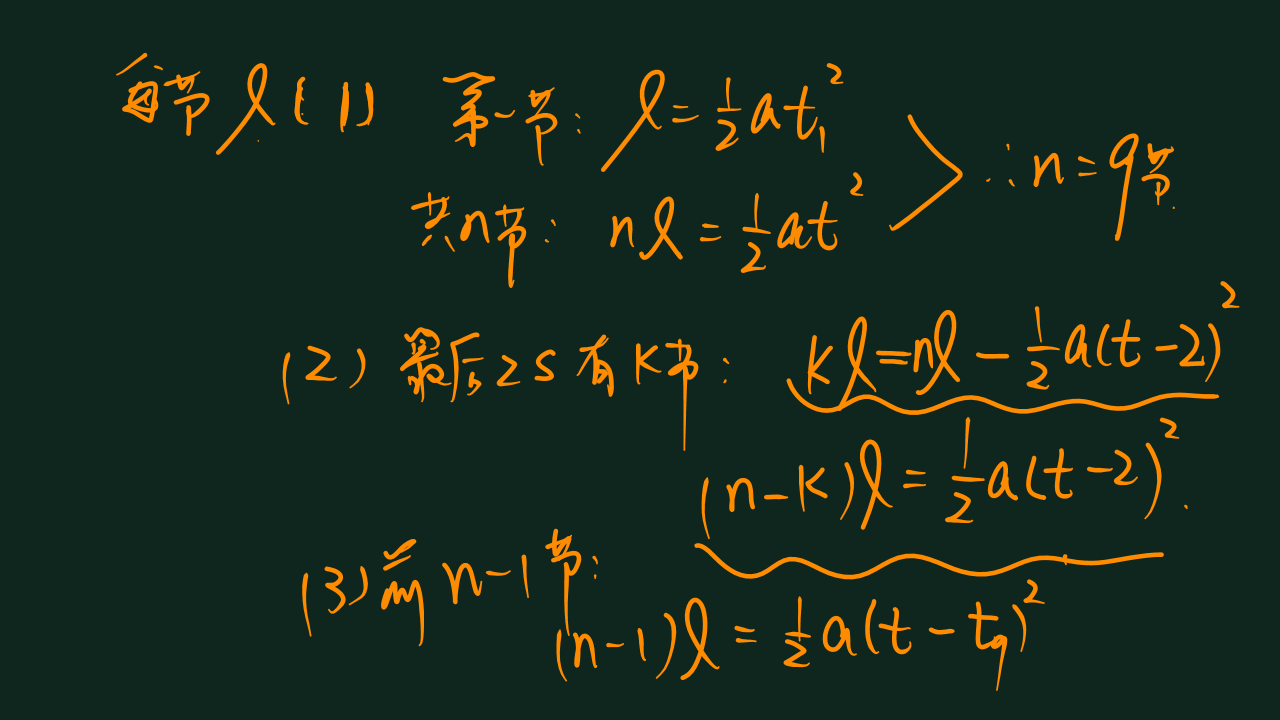 每节 l (1) 第一节: l = ½at₁²
共n节: nl = ½at²
∴ n = 9节
(2) 最后2s有K节: kl = nl − ½a(t−2)²
(n−K)l = ½a(t−2)².
(3) 前n−1节:
(n−1)l = ½a(t−t₉)²